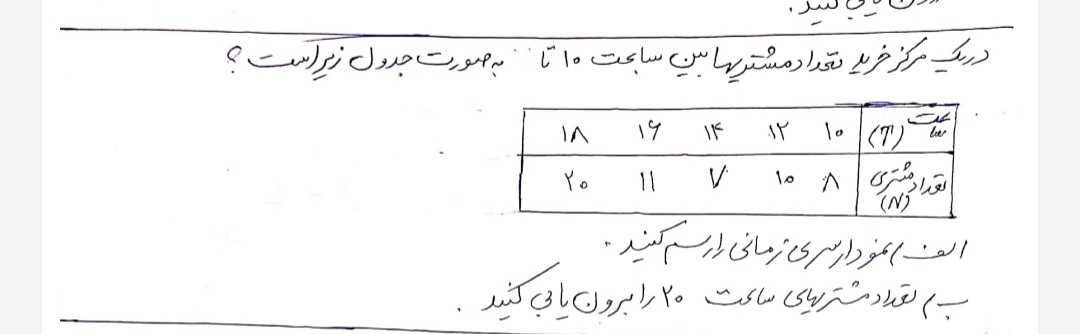 یابی کنید.
در یک مرکز خرید تعداد مشتریها بین ساعت ۱۰ تا به صورت جدول زیر است؟
ساعت (T) ۱۰ ۱۲ ۱۴ ۱۶ ۱۸
تعداد مشتری (N) ۸ ۱۰ ۷ ۱۱ ۲۰
الف) نمودار سری زمانی را رسم کنید.
ب) تعداد مشتریهای ساعت ۲۰ را برون یابی کنید.